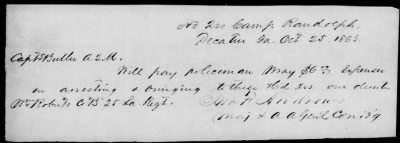 Hd Qrs Camp Randolph.
Decatur Ga. Oct 25. 1863.
Capt Butler A Q M.
Will pay policeman May $6 00 Expenses
in arresting & bringing to these Hd Qrs one deserter
Wm Roberts Co "B" 25 La Regt.
Andrews
Maj & A A Genl Com'dg